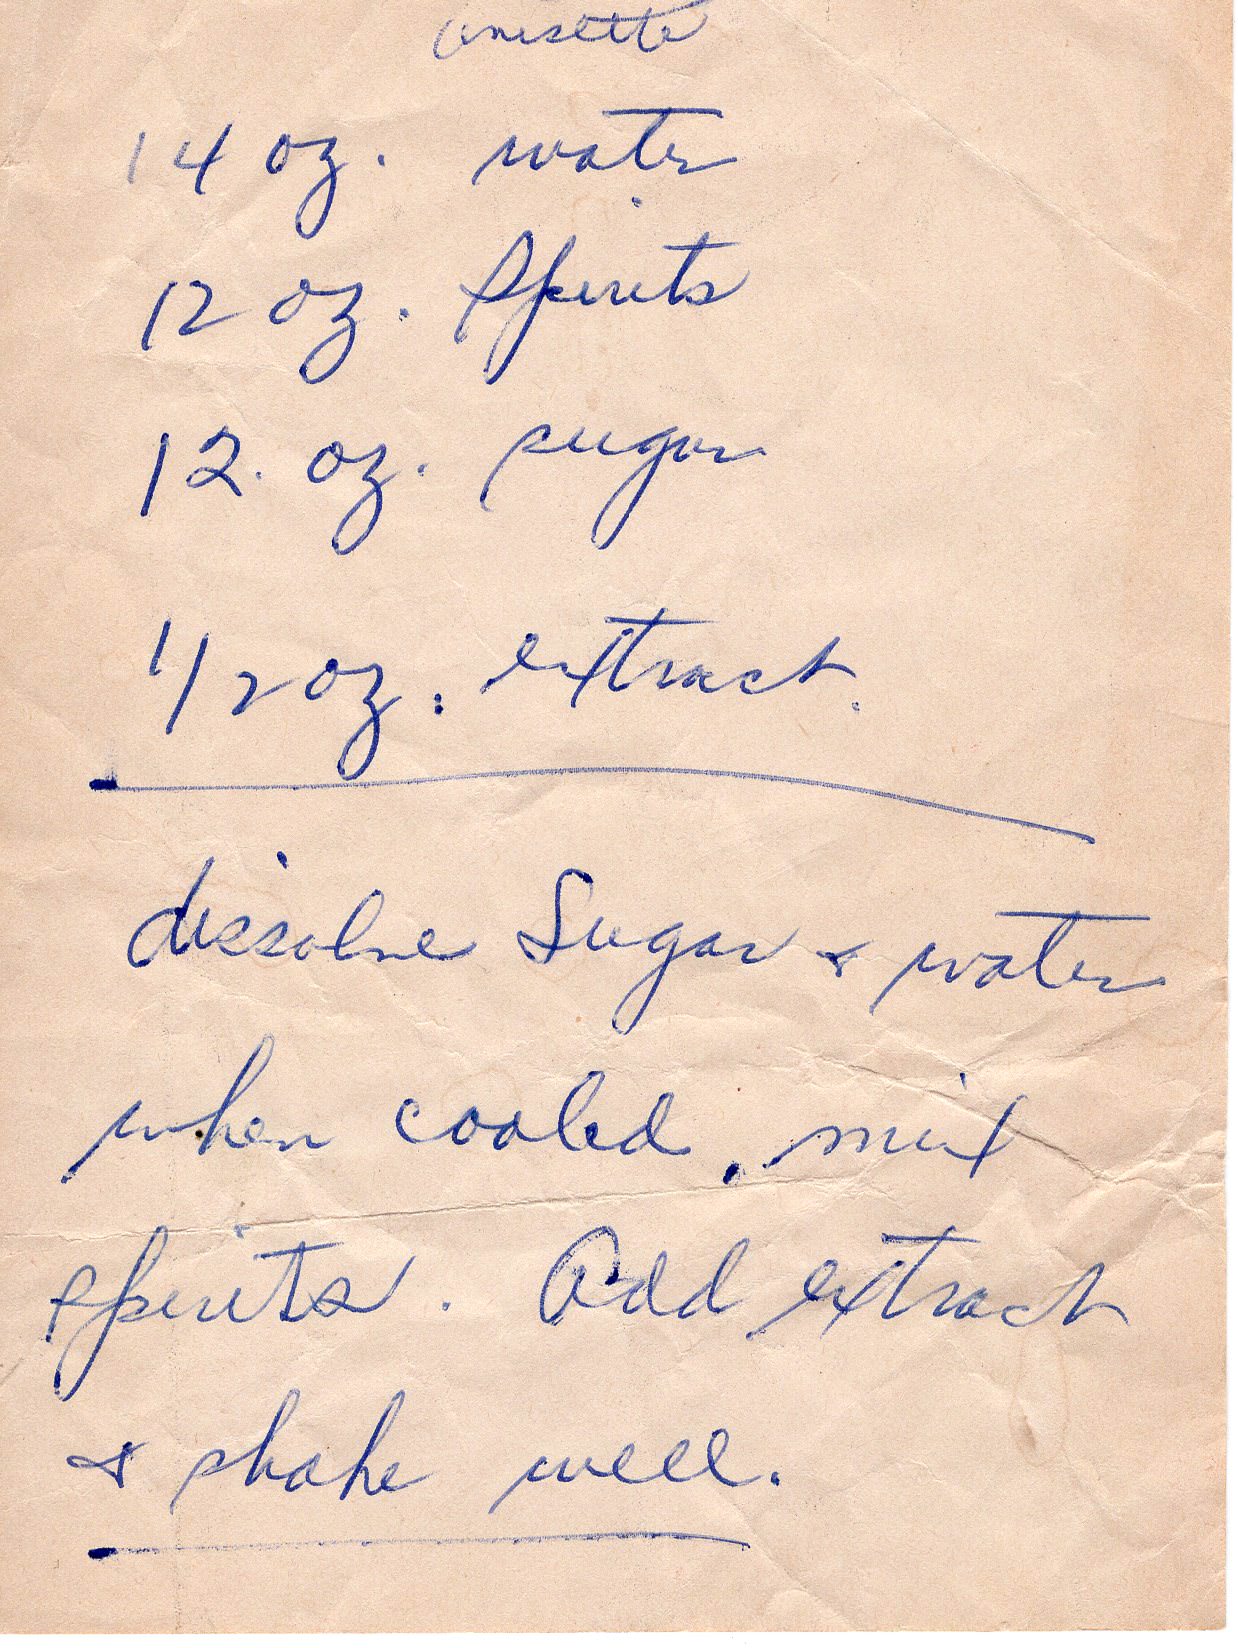 anisette
14 oz. water
12 oz. Spirits
12. oz. sugar
1/2 oz. extract.
dissolve Sugar & water
when cooled, mix
spirits. Add extract
& shake well.